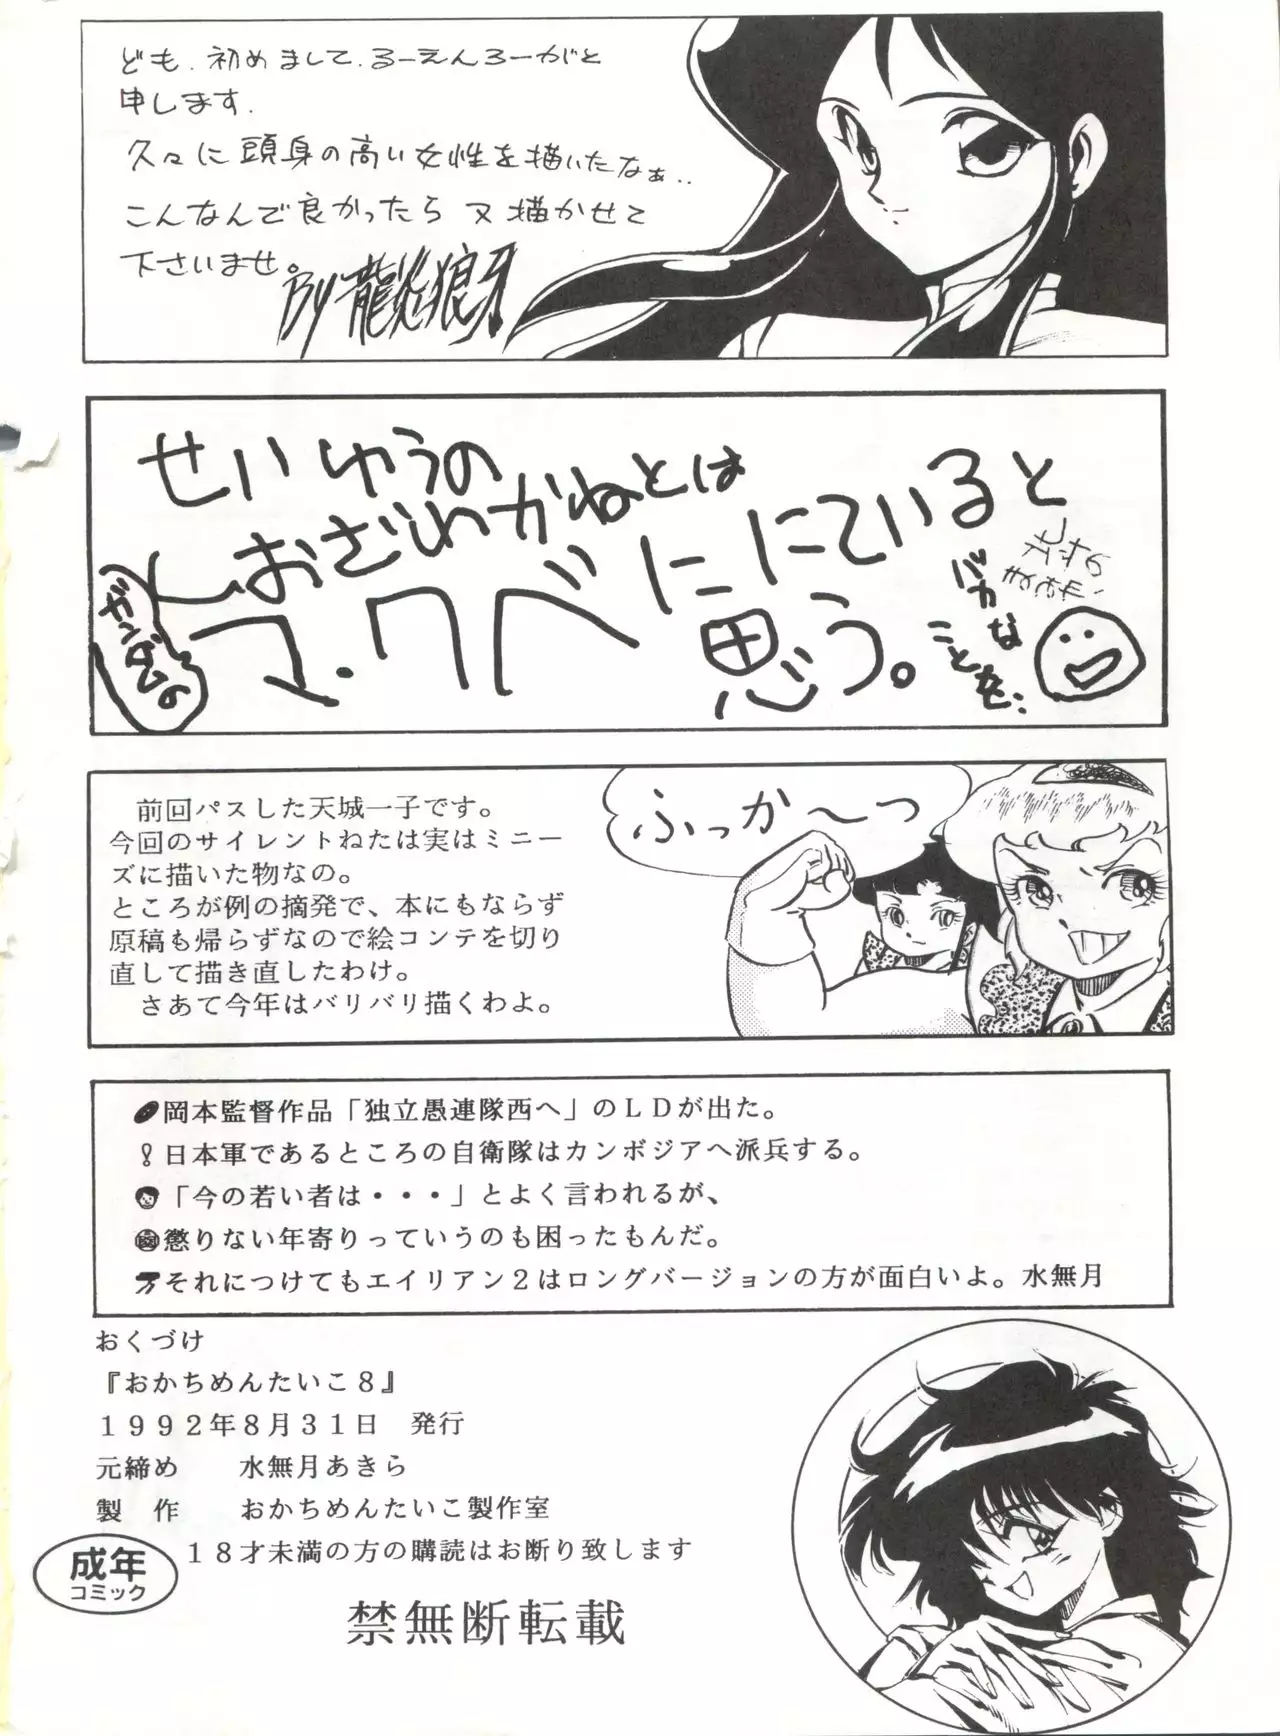 ども、初めまして、るーえんろーがと
申します.
久々に頭身の高い女性を描いたなぁ..
こんなんで良かったら 又描かせて
下さいませ。
By 龍炎狼牙
せいゆうの
しおざわかねとは
ガンダムの
マ・クベににていると
思う。
バカな
ことを…
前回パスした天城一子です。
今回のサイレントねたは実はミニー
ズに描いた物なの。
ところが例の摘発で、本にもならず
原稿も帰らずなので絵コンテを切り
直して描き直したわけ。
さあて今年はバリバリ描くわよ。
ふっか〜つ
岡本監督作品「独立愚連隊西へ」のＬＤが出た。
！日本軍であるところの自衛隊はカンボジアへ派兵する。
「今の若い者は・・・」とよく言われるが、
懲りない年寄りっていうのも困ったもんだ。
それにつけてもエイリアン２はロングバージョンの方が面白いよ。水無月
おくづけ
『おかちめんたいこ８』
１９９２年８月３１日　発行
元締め　　水無月あきら
製　作　　おかちめんたいこ製作室
１８才未満の方の購読はお断り致します
成年
コミック
禁無断転載